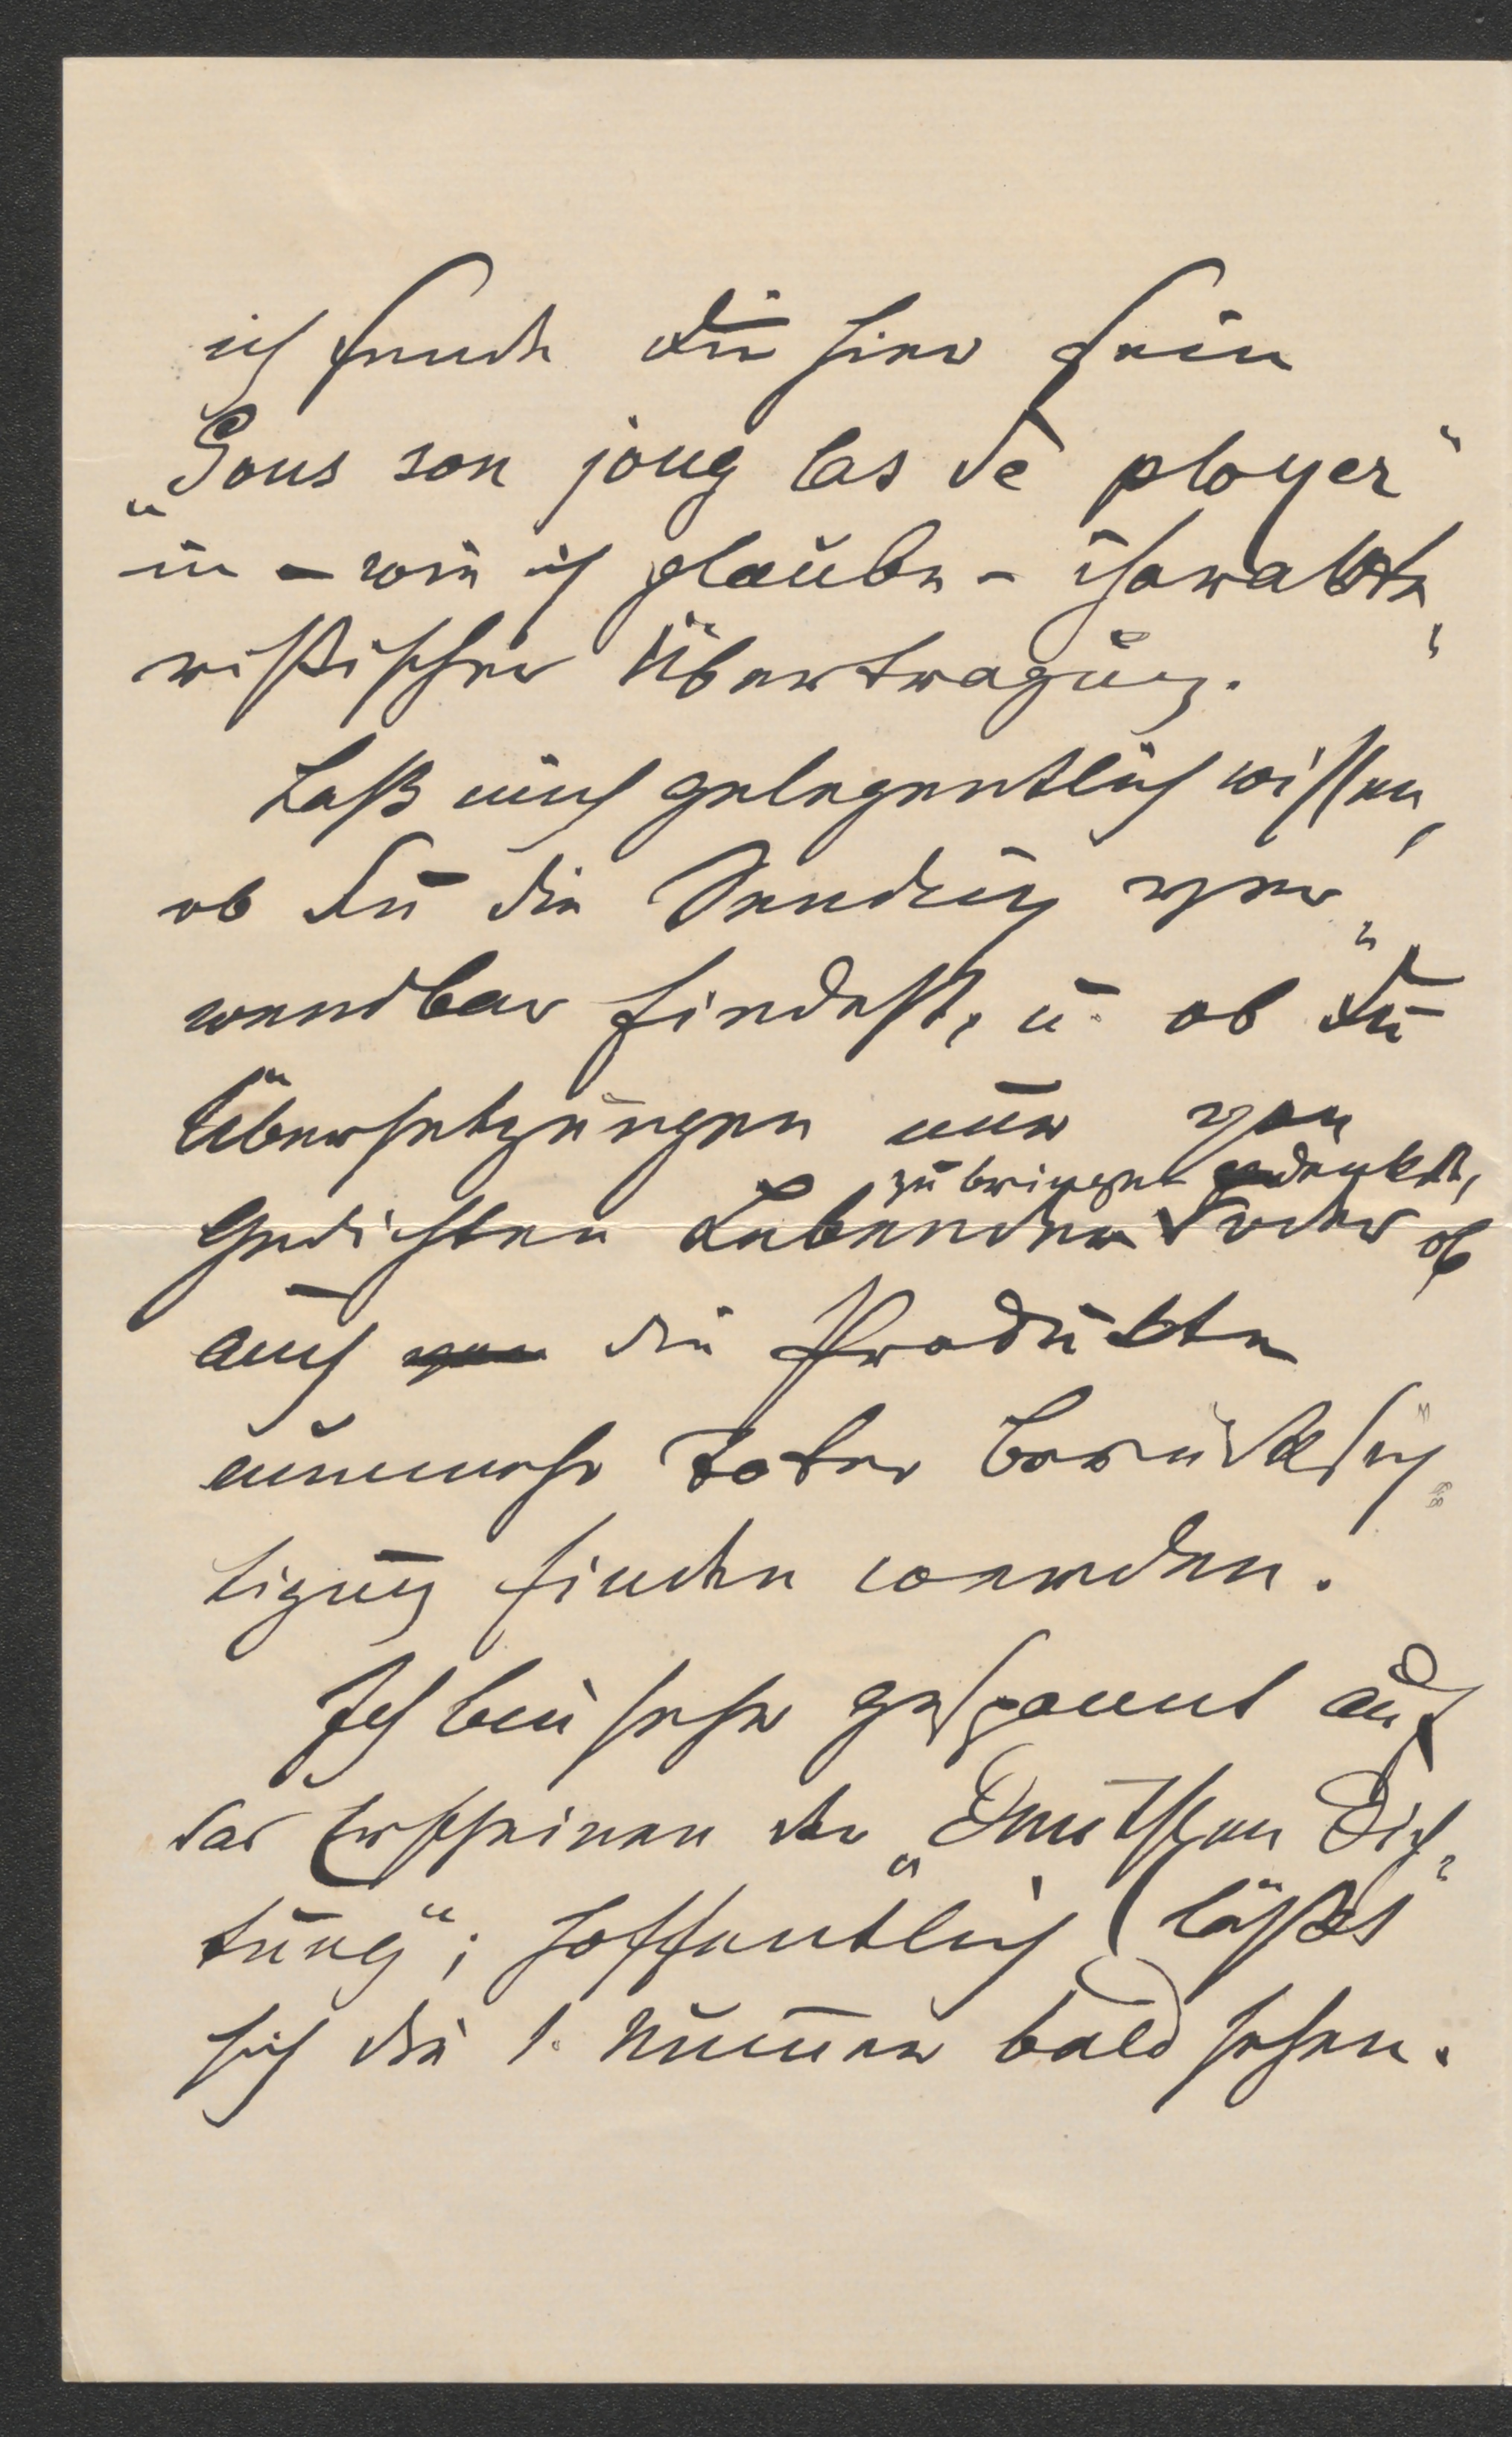 ich sende Dir hier Dein
„Sous son joug las de ployer"
in – wie ich glaube – charakte„
ristischer Übertragung.
Laß mich gelegentlich wissen,
ob Du die Sendung ver„
wendbar findest, u. ob Du
Übersetzungen nur von
zu bringen gedenkst,
Gedichten Lebender oder ob
auch von die Produkte
nunmehr Toter Berücksich„
tigung finden werden.
Ich bin sehr gespannt auf
das Erscheinen der „Deutschen Dich„
tung"; hoffentlich läßt
sich die 1. Nummer bald sehen.